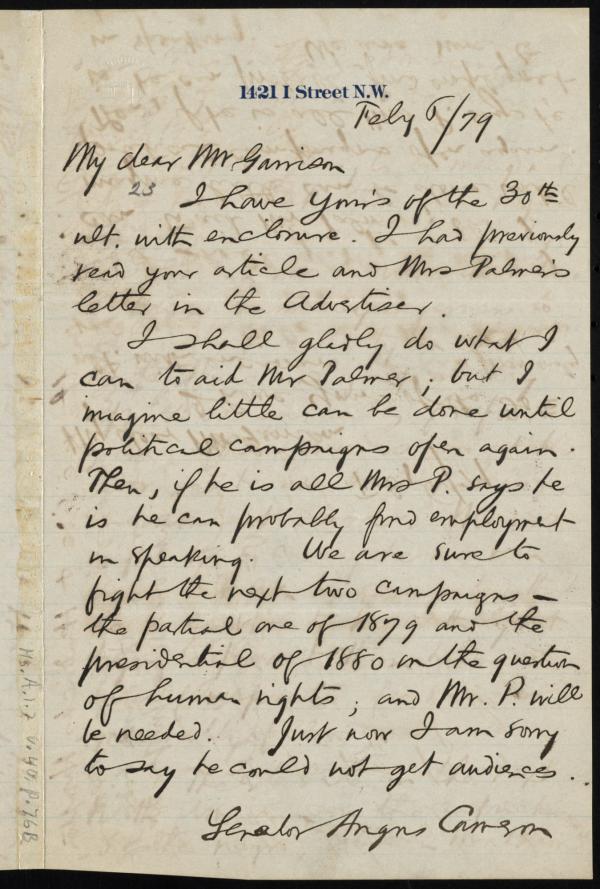 1421 I Street N.W.
Feby 6/79
My dear Mr Garrison
23
I have yours of the 30th
ult. with enclosure. I had previously
read your article and Mrs Palmer's
letter in the Advertiser.
I shall gladly do what I
can to aid Mr Palmer; but I
imagine little can be done until
political campaigns open again.
Then, if he is all Mrs P. says he
is he can probably find employment
in speaking. We are sure to
fight the next two campaigns —
the partial one of 1879 and the
presidential of 1880 on the question
of human rights; and Mr. P. will
be needed. Just now I am sorry
to say he could not get audiences.
Senator Angus Cameron
Ms. A. 1.2 v. 40, p. 76B